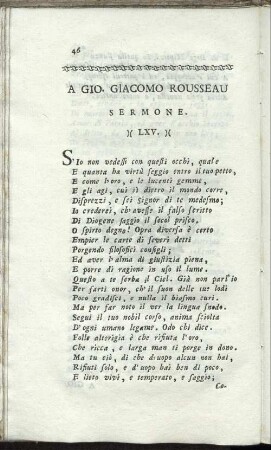 46
A GIO. GIACOMO ROUSSEAU
SERMONE.
)( LXV. )(
S'Io non vedessi con questi occhi, quale
E quanta ha virtù seggio entro il tuo petto,
E come l'oro, e le lucenti gemme,
E gli agi, cui sì dietro il mondo corre,
Disprezzi, e sei signor di te medesmo;
Io crederei, ch'avesse il falso scritto
Di Diogene saggio il secol prisco.
O spirto degno! Opra diversa è certo
Empier le carte di severi detti
Porgendo filosofici consigli;
Ed aver l'alma di giustizia piena,
E porre di ragione in uso il lume.
Questo a te serba il Ciel. Già non parl'io
Per farti onor, ch'il suon delle tue lodi
Poco gradisci, e nulla il biasmo curi.
Ma per far noto il ver la lingua snodo.
Segui il tuo nobil corso, anima sciolta
D'ogni umano legame. Odo chi dice.
Folle alterigia è che rifiuta l'oro,
Che ricca, e larga man ti porge in dono.
Ma tu ciò, di che d'uopo alcun non hai,
Rifiuti solo, e d'uopo hai ben di poco,
E lieto vivi, e temperato, e saggio;
Co-